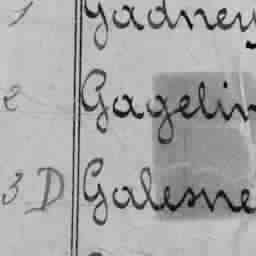 1 Gadney
2 Gagelin
3 D Galesne